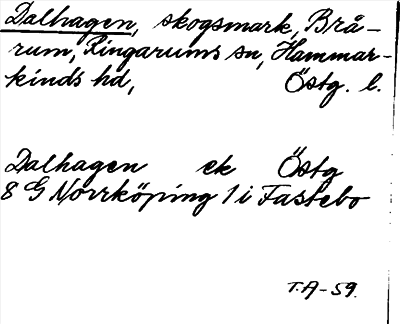 Dalhagen, skogsmark, Brå-
rum, Ringarums sn, Hammar-
kinds hd, Östg. l.
Dalhagen ek Östg
8 G Norrköping 1 i Fastebo
T.A-59.